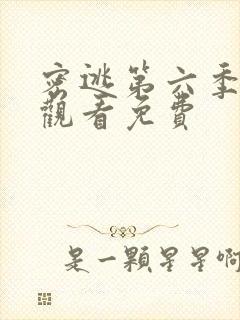 密逃第六季
觀看免費
是一顆星星啊